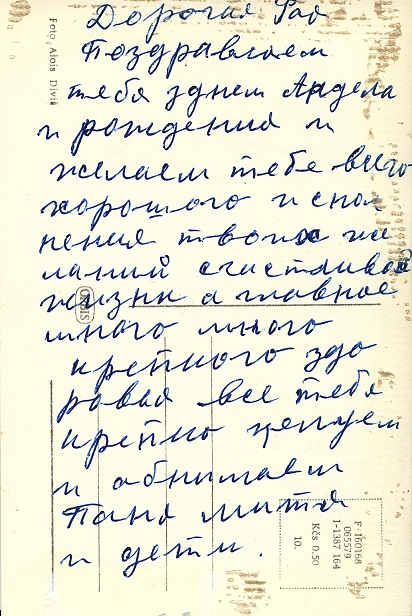 Дорогая Рая
Поздравляем
тебя зднем Ангела
и рождения и
желаем тебе всего
хорошого испол
нения твоих же
ланий счастливой
жизни а главное
много много
крепкого здо
ровья все тебя
крепко целуем
и обнимаем
Таня митя
и дети.
Foto Alois Diviš
ORBIS
F 160168
065579
1-1387 164
Kčs 0,50
10.